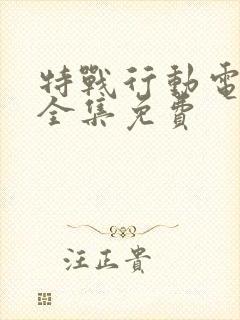 特戰行動電
全集免費
汪正貴